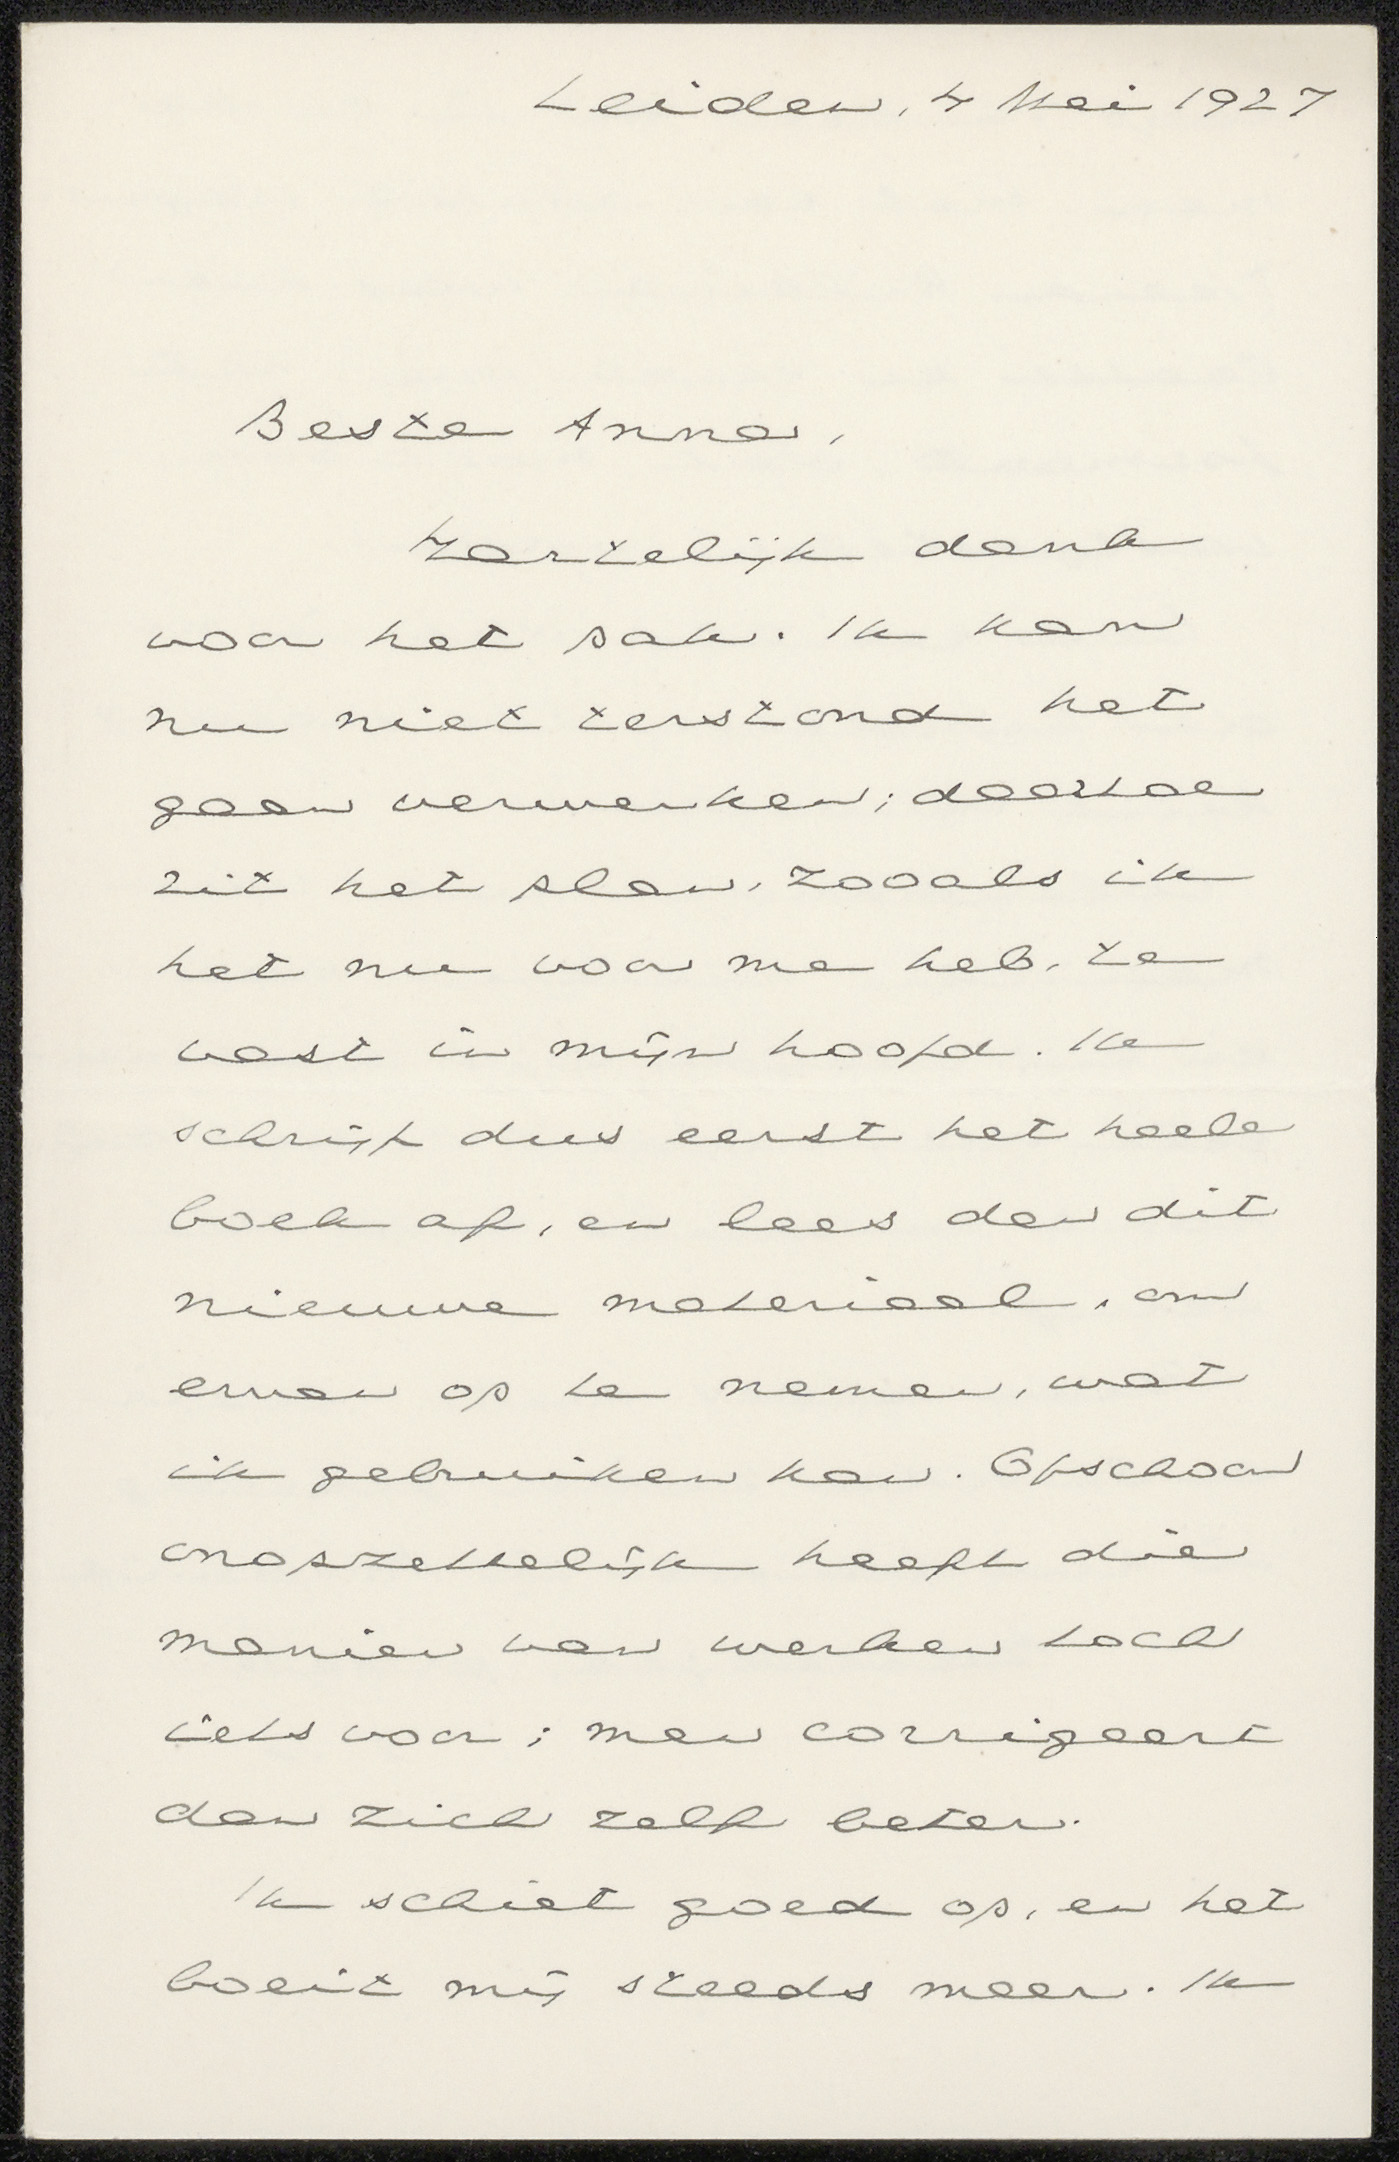 Leiden, 4 Mei 1927
Beste Anna,
Hartelijk dank
voor het pak. Ik kan
nu niet terstond het
gaan verwerken; daartoe
zit het plan, zooals ik
het nu voor me heb, te
vast in mijn hoofd. Ik
schrijf dus eerst het heele
boek af, en lees dan dit
nieuwe materiaal, om
ervan op te nemen, wat
ik gebruiken kan. Ofschoon
onopzettelijk heeft die
manier van werken toch
iets voor; men corrigeert
dan zich zelf beter.
Ik schiet goed op, en het
boeit mij steeds meer. Ik